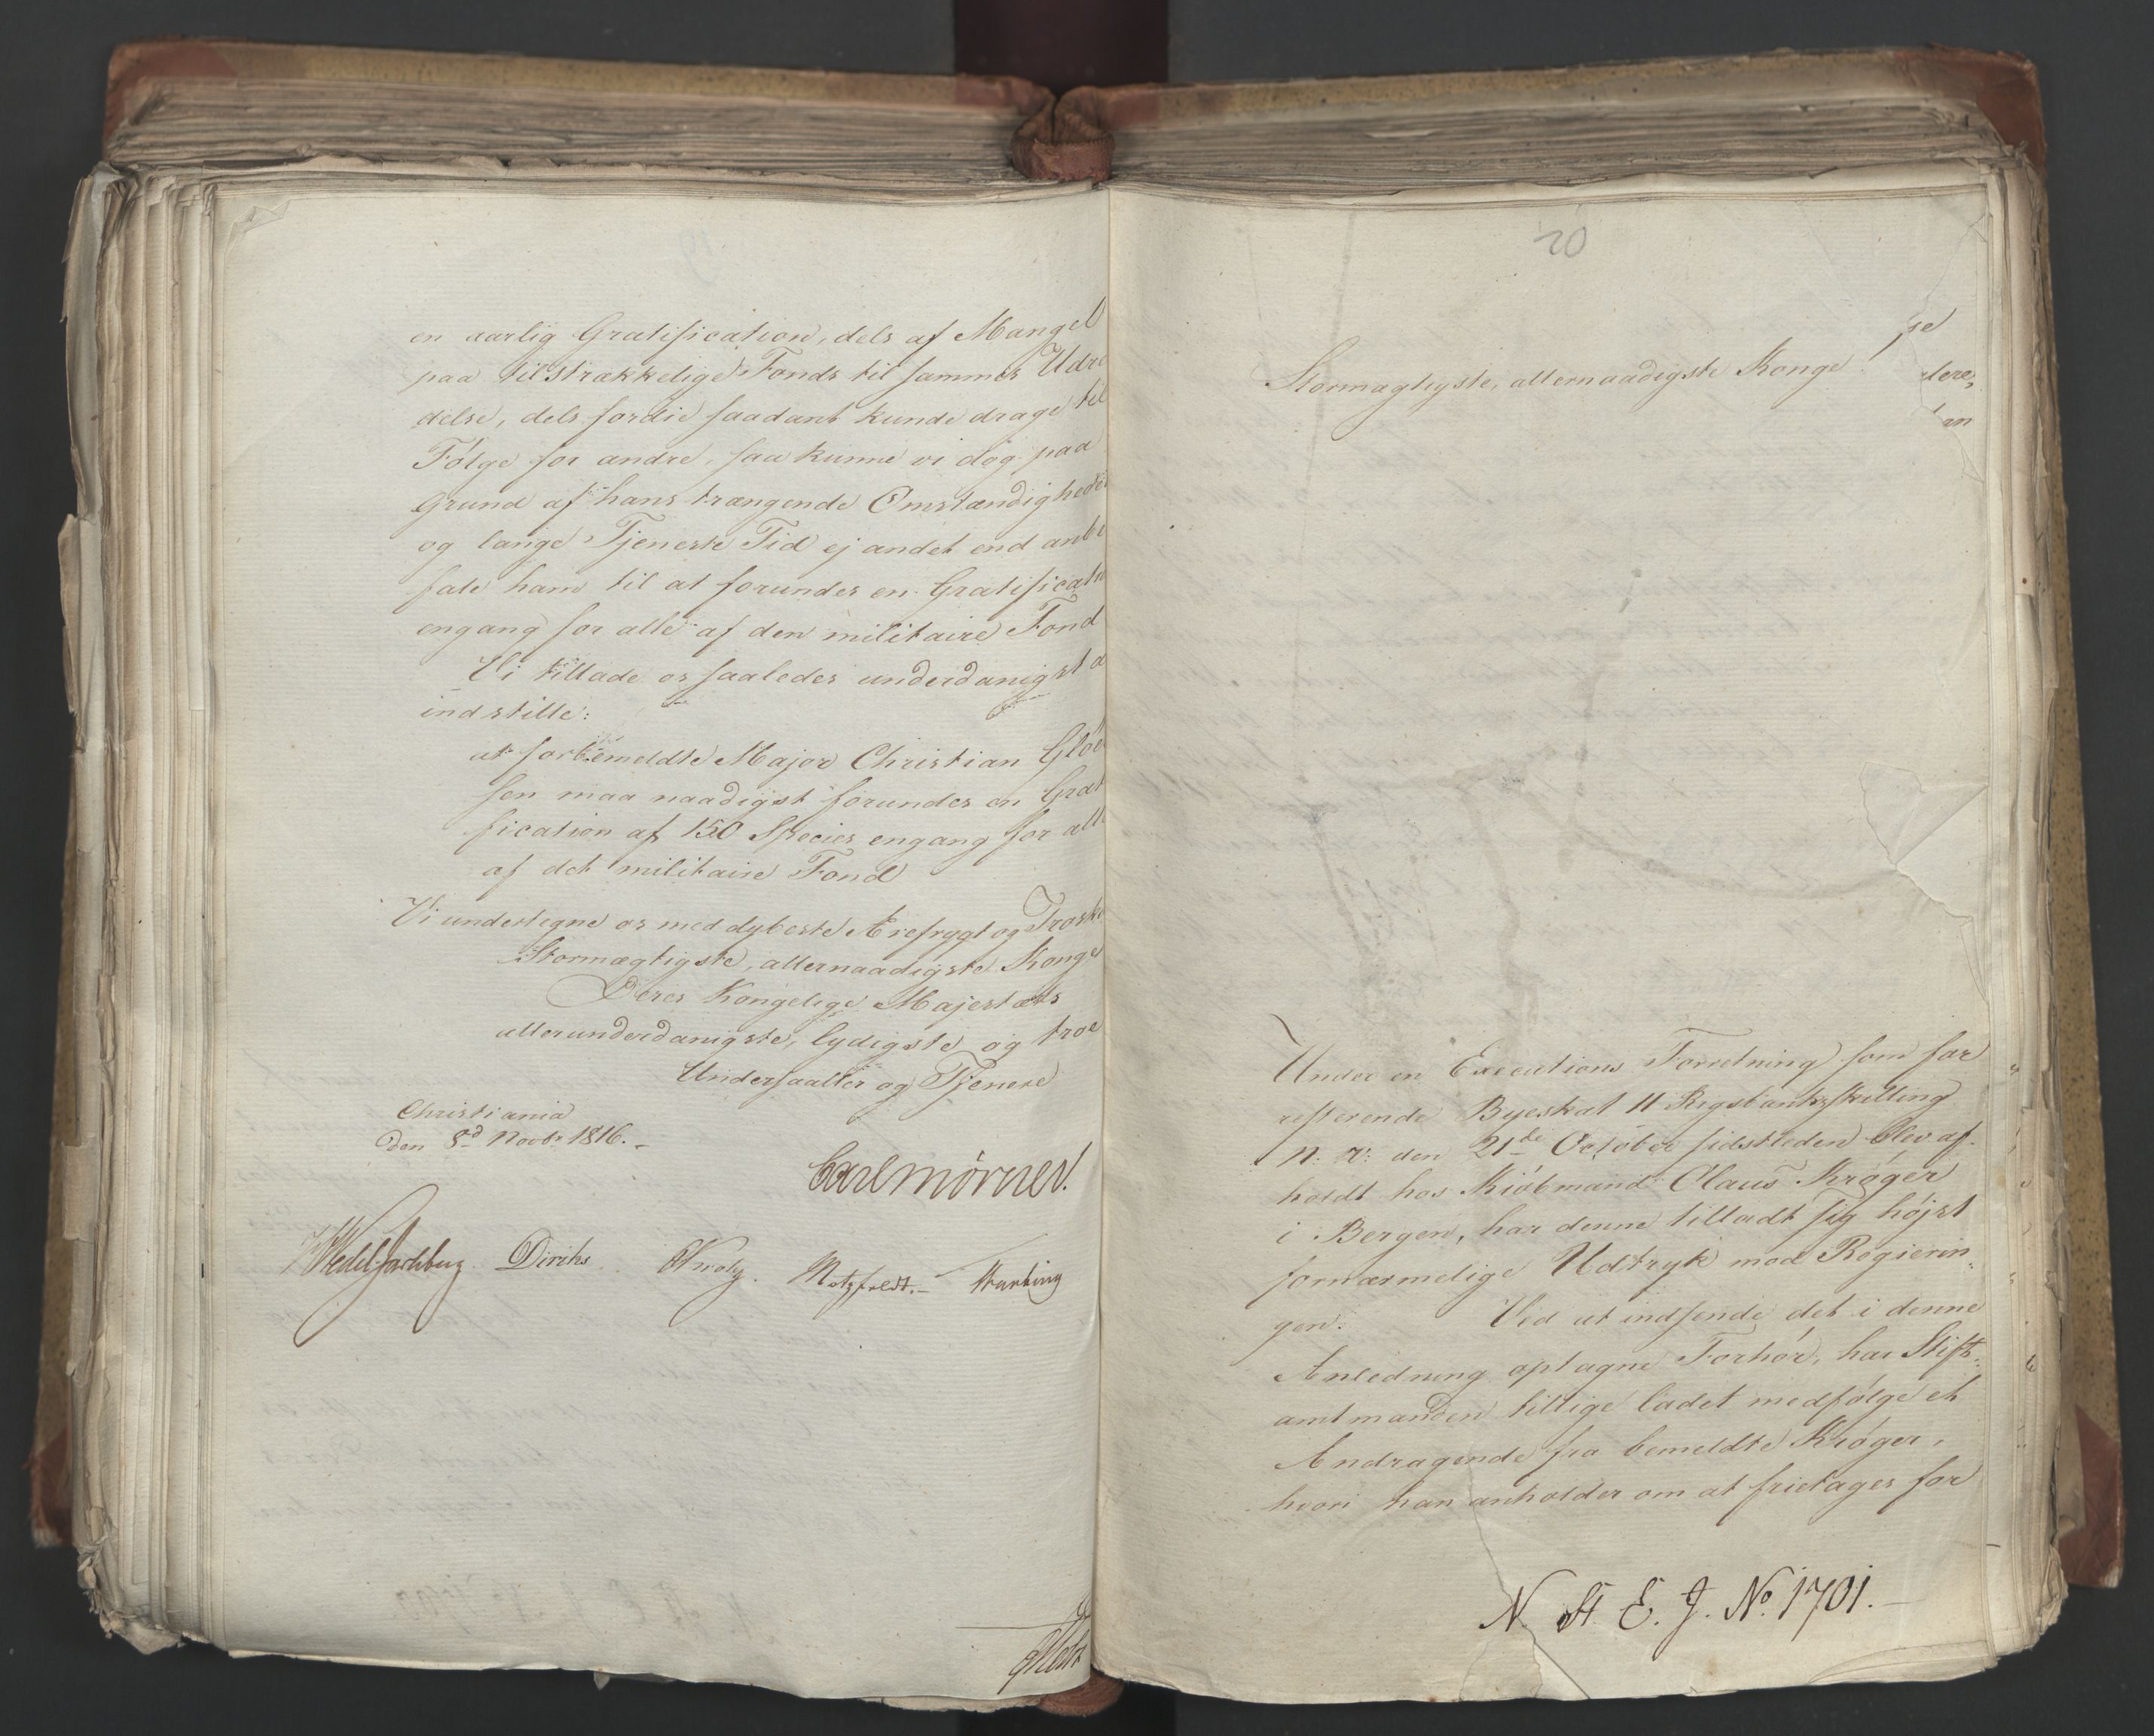 en aarlig Gratification, dels af Mangel
paa tilstrækkelige Fonds til sammes Udre
delse, dels fordie saadant kunde drage til
Følge for andre, saa kunne vi dog paa
Grund af hans trængende Omstændigheder
og lange Tjeneste Tid ej andet end anbe
fale ham til at forundes en Gratificati
engang for alle af den militaire Fond
Vi tillade os saaledes underdanigst a
indstille:
at forbemeldte Major Christian Gløe
sen maa naadigst forundes en Grat
fication af 150 Species engang for alle
af det militaire Fond
Vi undertegne os med dybeste Ærefrygt og Troska
Stormægtigste, allernaadigste Konge
Deres Kongelige Majestæts
allerunderdanigste, lydigste og troe
Undersaatter og Tjenere
Christiania
den 8d Novbr 1816.
Carl Mørner.
Wedel Jarlsberg Diriks Krohg. Motzfeldt. Hartvig
20
Stormægtigste, allernaadigste Konge!
se
dere,
an
Under en Executions Forretning som for
resterende Byeskat 11 Rigsbankskilling
N: V: den 21de October sidstleden blev af-
holdt hos Kiøbmand Claus Krøger
i Bergen, har denne tilladt sig højst
fornærmelige Udtryk mod Regierin-
gen. Ved at indsende det i denne
Anledning optagne Forhør, har Stift-
amtmanden tillige ladet medfølge et
Andragende fra bemeldte Krøger,
hvori han anholder om at frietages for
N. St. E. J. No. 1701.